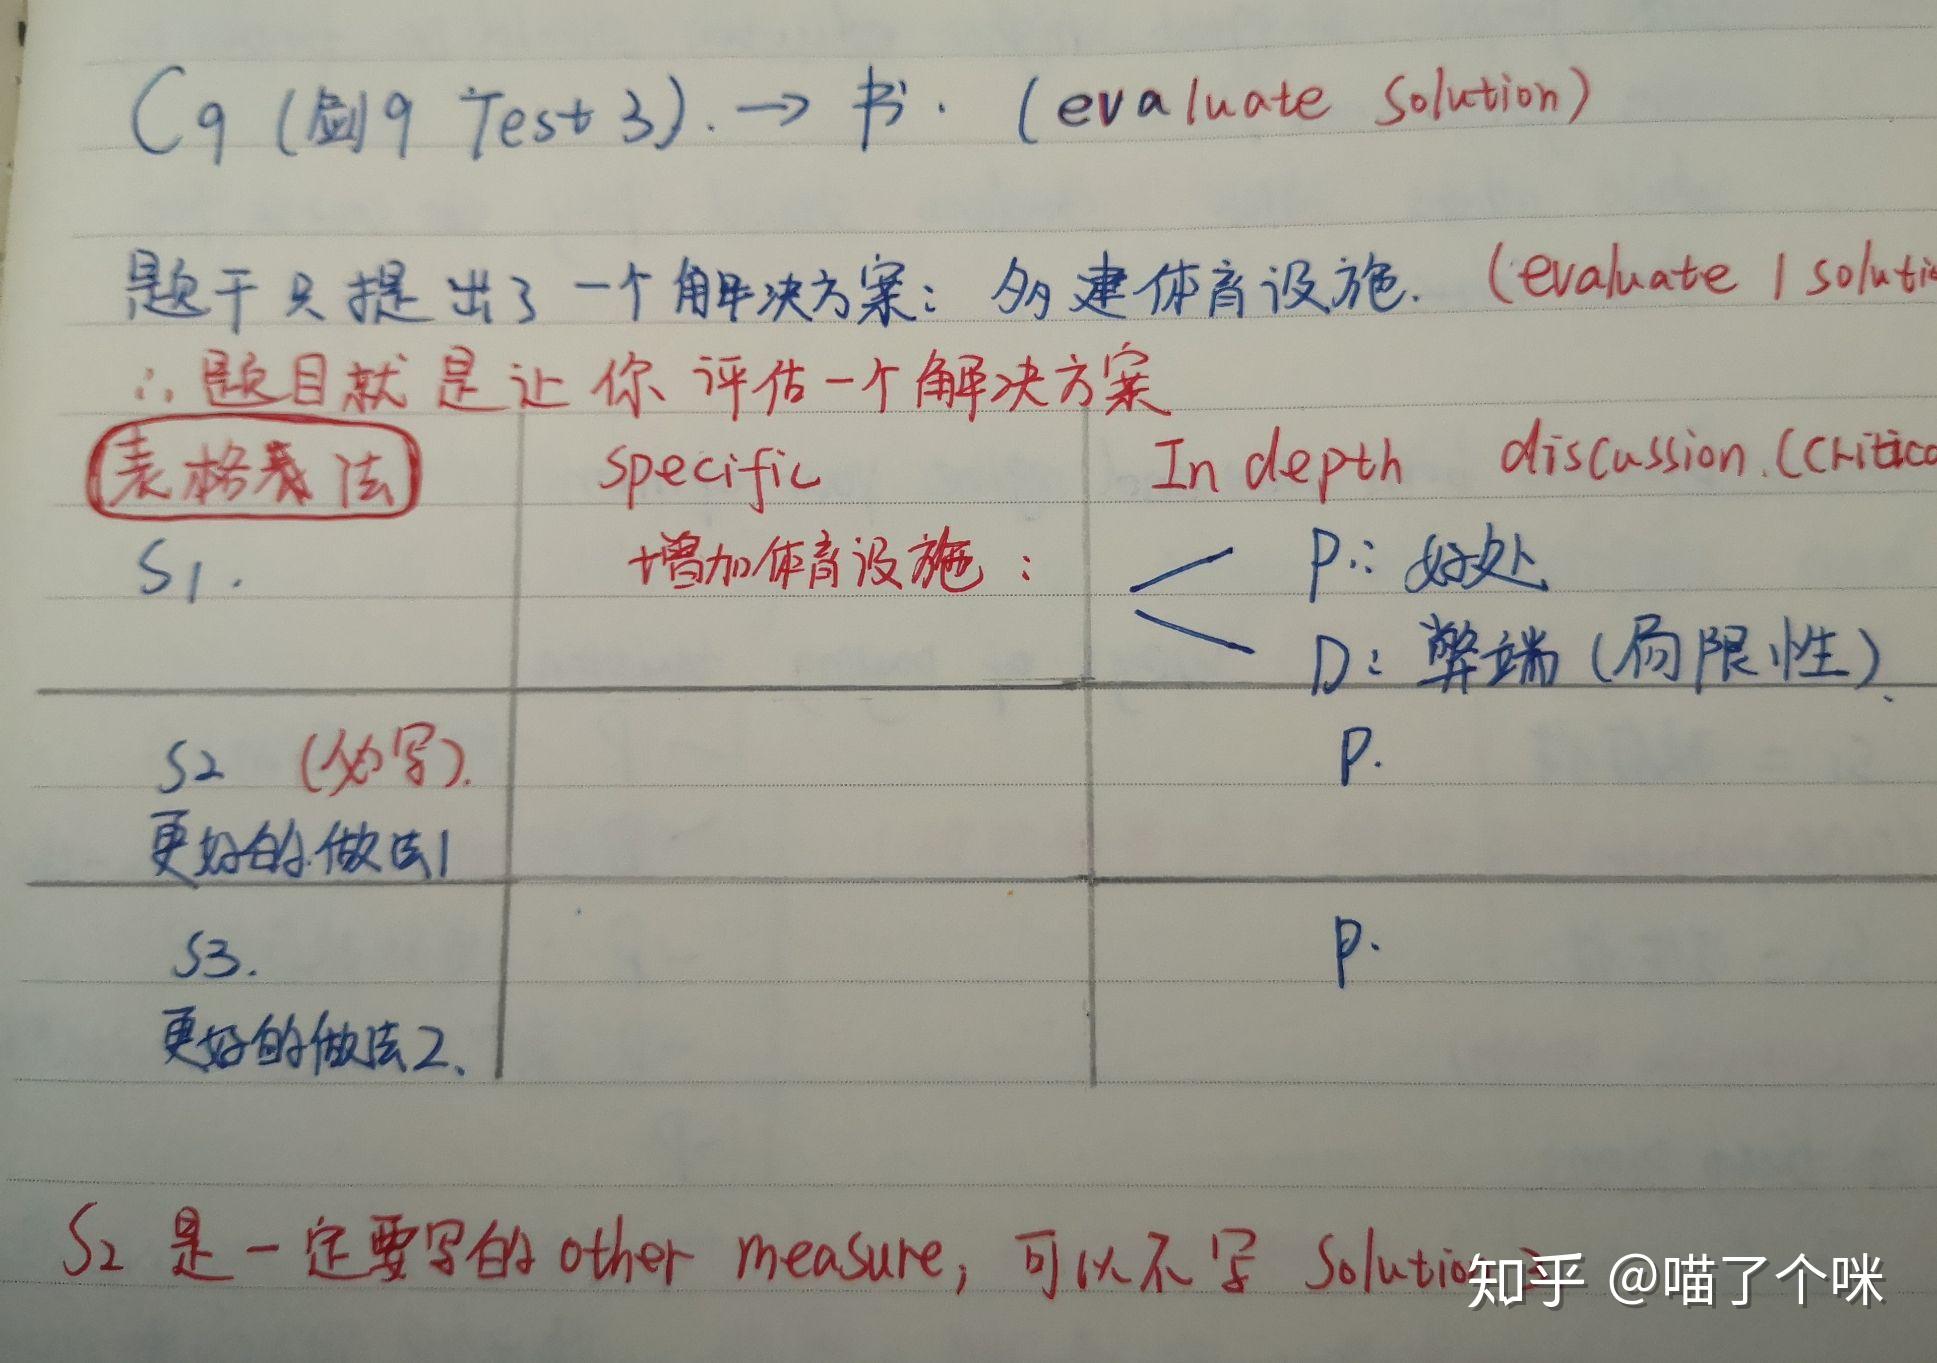 C9 (剑9 Test 3). → 书. (evaluate solution)
题干只提出了一个解决方案: 多建体育设施. (evaluate 1 soluti
∴ 题目就是让你评估一个解决方案
表格表法 specific In depth discussion. (critica
S1. +增加体育设施: P: 好处
D: 弊端 (局限性).
S2 (必写). P.
更好的做法1
S3. P.
更好的做法2.
S2 是一定要写的 other measure, 可以不写 Solution 3
知乎 @喵了个咪